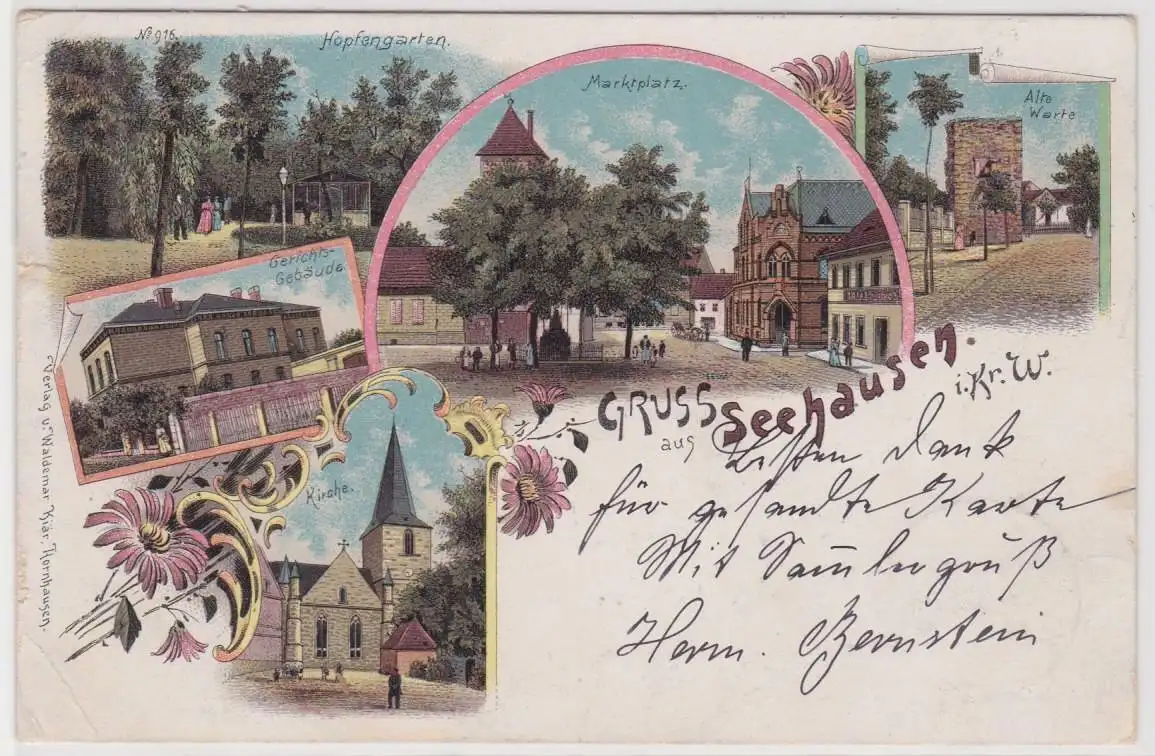 No 916.
Hopfengarten.
Marktplatz.
Alte
Warte
Gerichts-
Gebäude
Kirche.
GRUSS
aus
Seehausen.
i. Kr. W.
Besten Dank
für gesandte Karte
Mit Sam̅lergruß
Herm. Bernstein
Verlag v. Waldemar Kiär, Hornhausen.